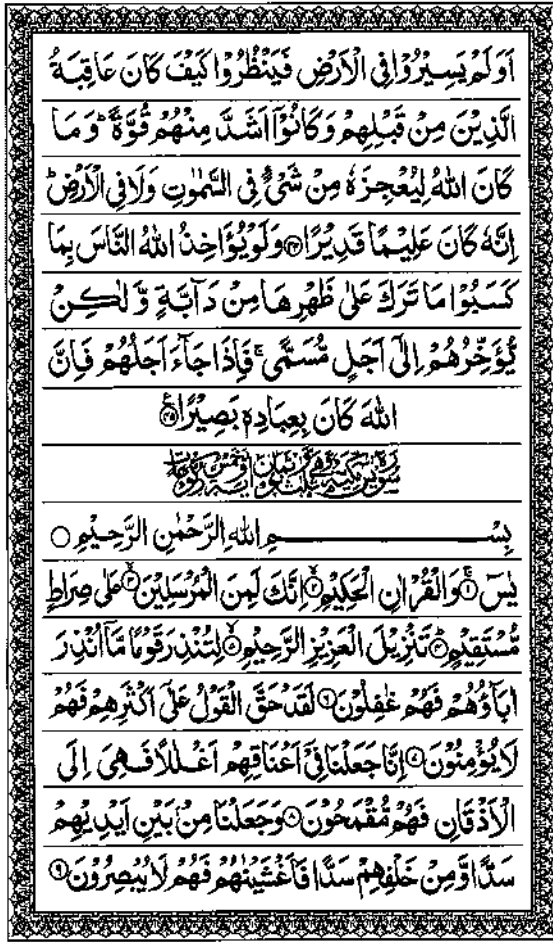 اَوَلَمْ يَسِيْرُوْا فِى الْاَرْضِ فَيَنْظُرُوْا كَيْفَ كَانَ عَاقِبَةُ
الَّذِيْنَ مِنْ قَبْلِهِمْ وَكَانُوْۤا اَشَدَّ مِنْهُمْ قُوَّةً ؕ وَمَا
كَانَ اللّٰهُ لِيُعْجِزَهٗ مِنْ شَىْءٍ فِى السَّمٰوٰتِ وَلَا فِى الْاَرْضِ ؕ
اِنَّهٗ كَانَ عَلِيْمًا قَدِيْرًا ﴿۴۴﴾ وَلَوْ يُؤَاخِذُ اللّٰهُ النَّاسَ بِمَا
كَسَبُوْا مَا تَرَكَ عَلٰى ظَهْرِهَا مِنْ دَآبَّةٍ وَّلٰكِنْ
يُّؤَخِّرُهُمْ اِلٰۤى اَجَلٍ مُّسَمًّى ۚ فَاِذَا جَآءَ اَجَلُهُمْ فَاِنَّ
اللّٰهَ كَانَ بِعِبَادِهٖ بَصِيْرًا ﴿۴۵﴾ ع
بِسْمِ اللّٰهِ الرَّحْمٰنِ الرَّحِيْمِ
يٰسٓ ﴿۱﴾ ۚ وَالْقُرْاٰنِ الْحَكِيْمِ ﴿۲﴾ ۙ اِنَّكَ لَمِنَ الْمُرْسَلِيْنَ ﴿۳﴾ ۙ عَلٰى صِرَاطٍ
مُّسْتَقِيْمٍ ﴿۴﴾ ؕ تَنْزِيْلَ الْعَزِيْزِ الرَّحِيْمِ ﴿۵﴾ ۙ لِتُنْذِرَ قَوْمًا مَّاۤ اُنْذِرَ
اٰبَآؤُهُمْ فَهُمْ غٰفِلُوْنَ ﴿۶﴾ لَقَدْ حَقَّ الْقَوْلُ عَلٰۤى اَكْثَرِهِمْ فَهُمْ
لَا يُؤْمِنُوْنَ ﴿۷﴾ اِنَّا جَعَلْنَا فِىْۤ اَعْنَاقِهِمْ اَغْلٰلًا فَهِىَ اِلَى
الْاَذْقَانِ فَهُمْ مُّقْمَحُوْنَ ﴿۸﴾ وَجَعَلْنَا مِنْۢ بَيْنِ اَيْدِيْهِمْ
سَدًّا وَّمِنْ خَلْفِهِمْ سَدًّا فَاَغْشَيْنٰهُمْ فَهُمْ لَا يُبْصِرُوْنَ ﴿۹﴾